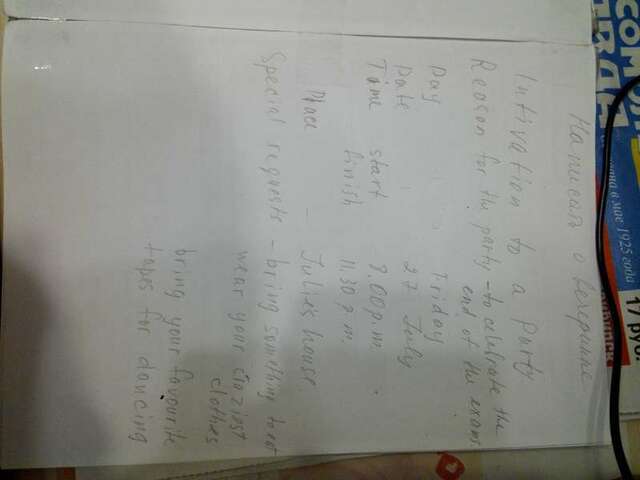 Написать о вечеринке
Intivation to a Party
Reason for the party – to celebrate the
end of the exams
Day Friday
Date 27 July
Time start 8.00 p.m.
finish 11.30 p.m.
Place Julie's house
Special requests – bring something to eat
wear your craziest
clothes
bring your favourite
tapes for dancing
в мае 1925 года
17 руб.